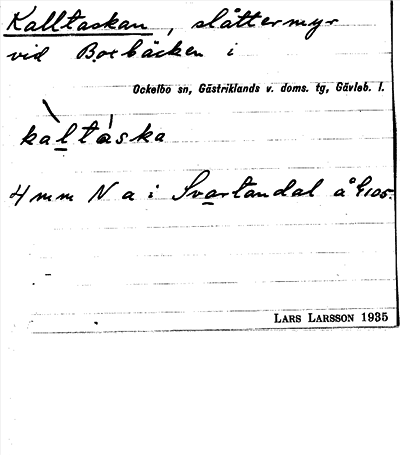 Kalltaskan, slåttermyr
vid Boxbäcken i
Ockelbo sn, Gästriklands v. doms. tg, Gävleb. l.
kàltáska
4 mm N a i Svartandal å G105.
LARS LARSSON 1935